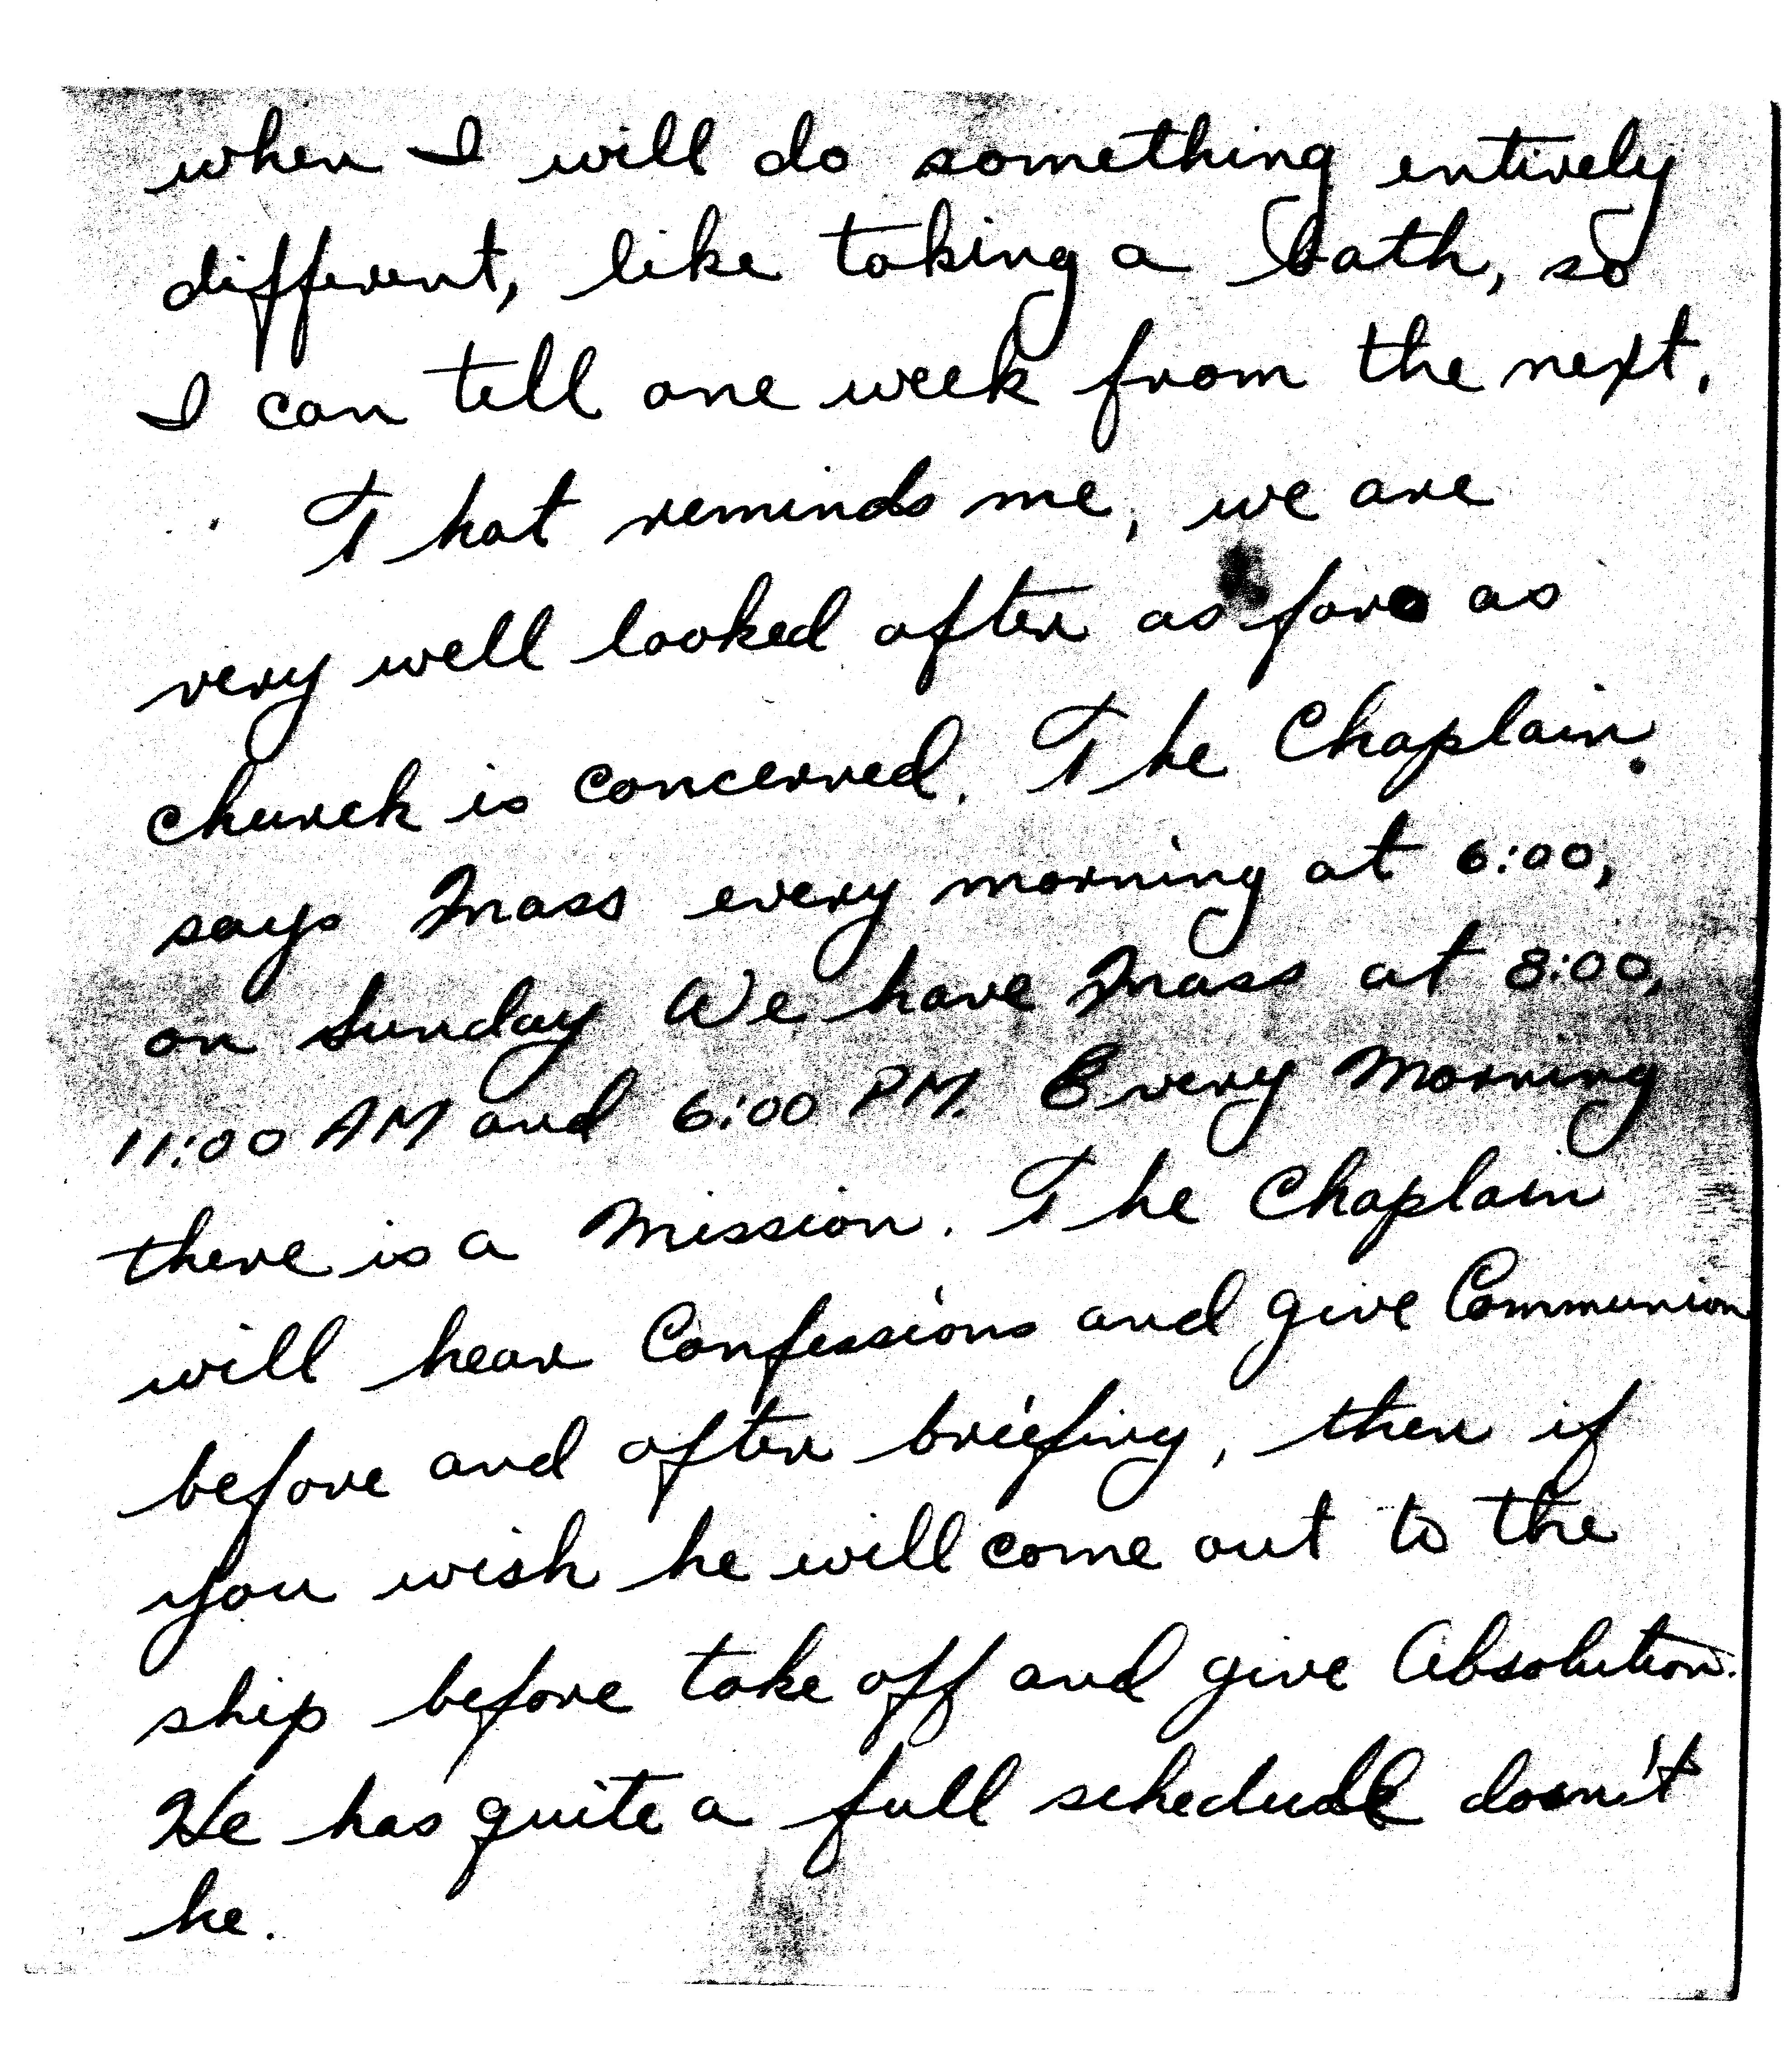 when I will do something entirely
different, like taking a bath, so
I can tell one week from the next.
That reminds me, we are
very well looked after as far as
church is concerned. The Chaplain
says Mass every morning at 6:00,
on Sunday We have Mass at 8:00,
11:00 AM and 6:00 PM. Every Morning
there is a Mission. The Chaplain
will hear Confessions and give Communion
before and after briefing, then if
you wish he will come out to the
ship before take off and give Absolution.
He has quite a full schedule doesn't
he.